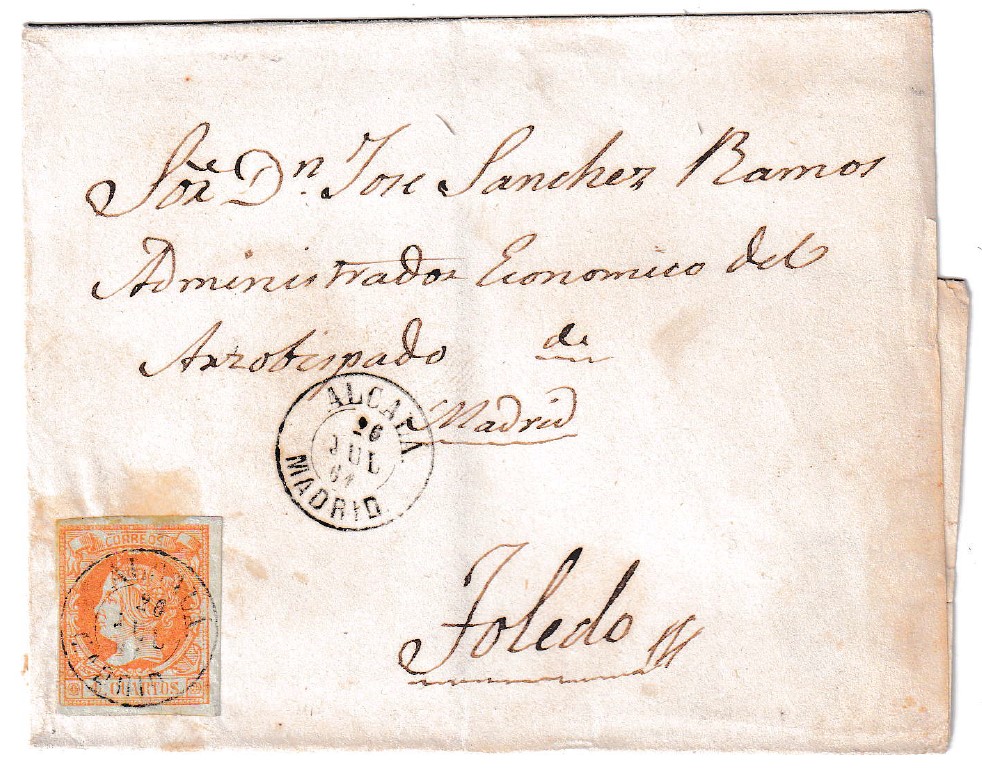 Sõre Dn Jose Sanchez Ramos
Administrador Economico del
Arzobispado de
Madrid
ALCALA
26
JUL
61
MADRID
Toledo
CORREOS
ALCALA
26
MADRID
CUARTOS